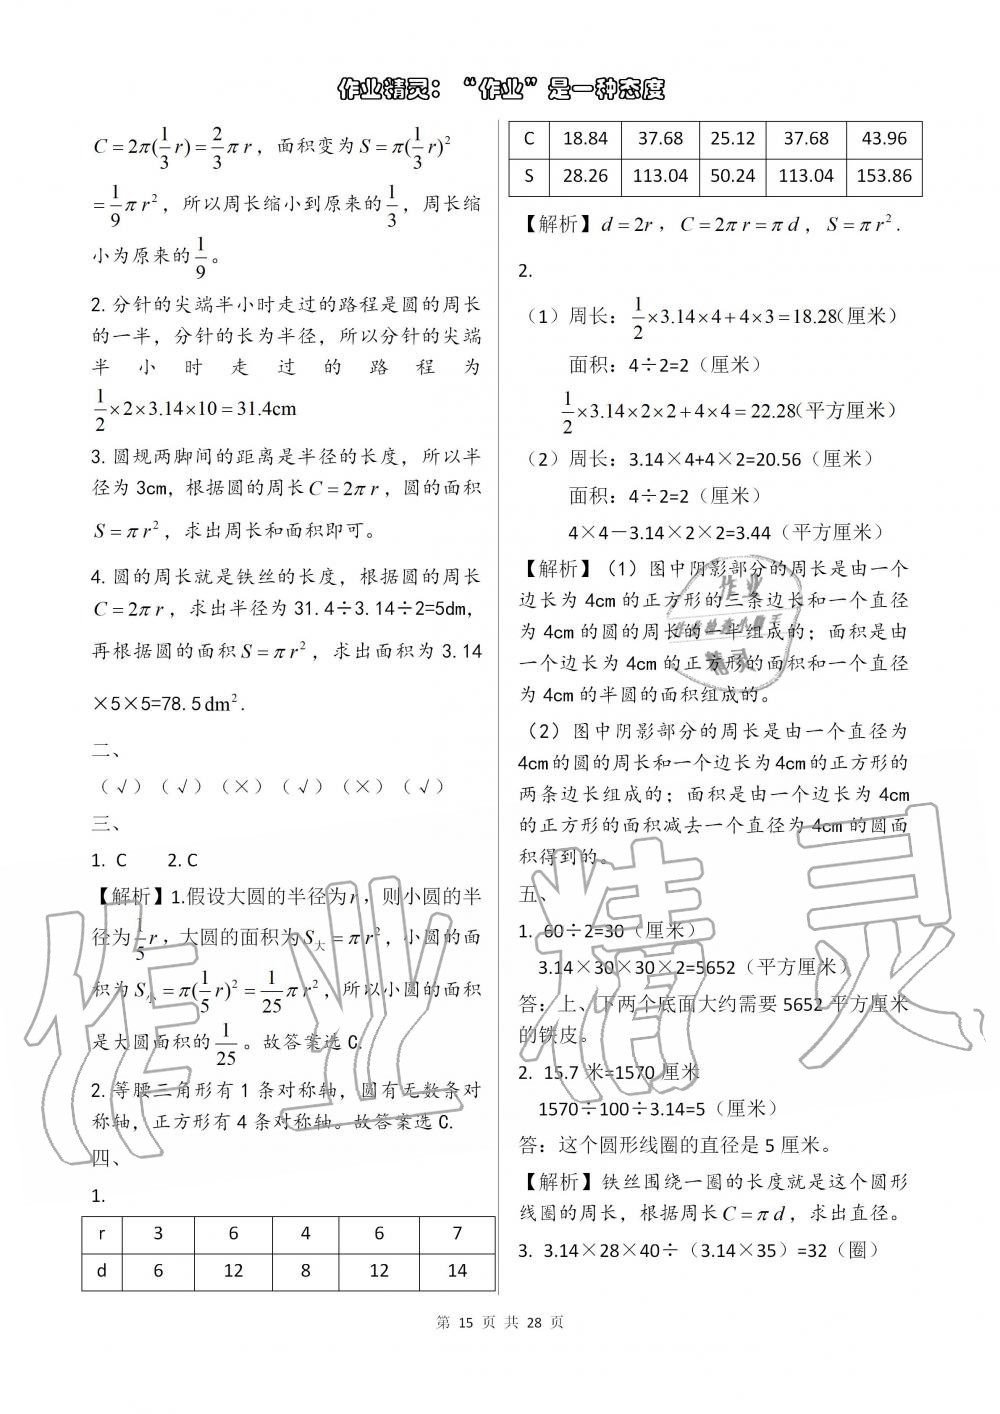 作业精灵：“作业”是一种态度
C=2π(1/3 r)=2/3 π r，面积变为S=π(1/3 r)²
=1/9 π r²，所以周长缩小到原来的1/3，周长缩
小为原来的1/9。
2.分针的尖端半小时走过的路程是圆的周长
的一半，分针的长为半径，所以分针的尖端
半小时走过的路程为
1/2×2×3.14×10=31.4cm
3.圆规两脚间的距离是半径的长度，所以半
径为3cm，根据圆的周长C=2π r，圆的面积
S=π r²，求出周长和面积即可。
4.圆的周长就是铁丝的长度，根据圆的周长
C=2π r，求出半径为31.4÷3.14÷2=5dm，
再根据圆的面积S=π r²，求出面积为3.14
×5×5=78.5dm².
二、
（√）（√）（×）（√）（×）（√）
三、
1. C 2. C
【解析】1.假设大圆的半径为r，则小圆的半
径为1/5 r，大圆的面积为S大=π r²，小圆的面
积为S小=π(1/5 r)²=1/25 π r²，所以小圆的面积
是大圆面积的1/25。故答案选C.
2.等腰三角形有1条对称轴，圆有无数条对
称轴，正方形有4条对称轴。故答案选C.
四、
1.
r 3 6 4 6 7
d 6 12 8 12 14
C 18.84 37.68 25.12 37.68 43.96
S 28.26 113.04 50.24 113.04 153.86
【解析】d=2r，C=2π r=π d，S=π r².
2.
（1）周长：1/2×3.14×4+4×3=18.28(厘米)
面积：4÷2=2（厘米）
1/2×3.14×2×2+4×4=22.28(平方厘米)
（2）周长：3.14×4+4×2=20.56（厘米）
面积：4÷2=2（厘米）
4×4－3.14×2×2=3.44（平方厘米）
【解析】（1）图中阴影部分的周长是由一个
边长为4cm的正方形的三条边长和一个直径
为4cm的圆的周长的一半组成的；面积是由
一个边长为4cm的正方形的面积和一个直径
为4cm的半圆的面积组成的。
（2）图中阴影部分的周长是由一个直径为
4cm的圆的周长和一个边长为4cm的正方形的
两条边长组成的；面积是由一个边长为4cm
的正方形的面积减去一个直径为4cm的圆面
积得到的。
五、
1. 60÷2=30（厘米）
3.14×30×30×2=5652（平方厘米）
答：上、下两个底面大约需要5652平方厘米
的铁皮。
2. 15.7米=1570厘米
1570÷100÷3.14=5（厘米）
答：这个圆形线圈的直径是5厘米。
【解析】铁丝围绕一圈的长度就是这个圆形
线圈的周长，根据周长C=π d，求出直径。
3. 3.14×28×40÷（3.14×35）=32（圈）
第 15 页 共 28 页
作业精灵
作业
精灵